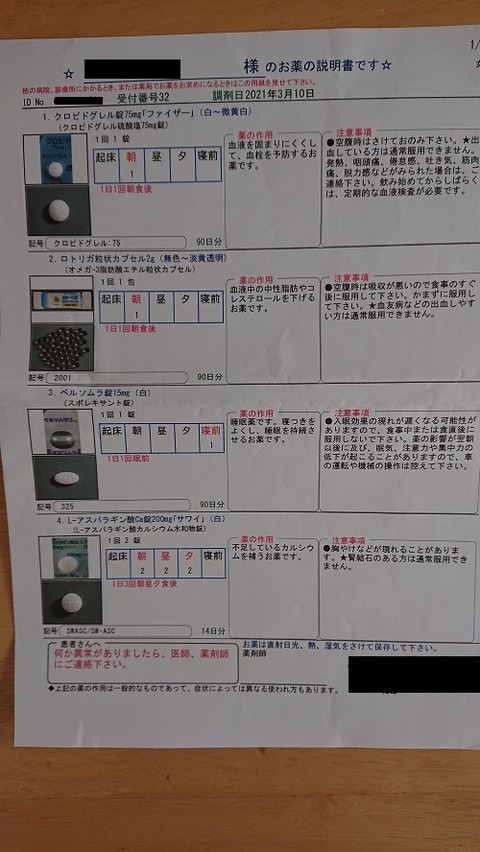 1/
☆ 様 のお薬の説明書です☆
他の病院、診療所にかかるとき、または薬局でお薬をお求めになるときはこの用紙を見せて下さい。
ID No 受付番号32 調剤日2021年3月10日
1. クロピドグレル錠75mg「ファイザー」(白～微黄白)
(クロピドグレル硫酸塩75mg錠)
クロピド
75mg
1回 1 錠
起床 朝 昼 夕 寝前
1
1日1回朝食後
記号 クロピドグレル:75 90日分
薬の作用
血液を固まりにくくし
て、血栓を予防するお
薬です。
注意事項
●空腹時はさけておのみ下さい。★出
血している方は通常服用できません。
発熱、咽頭痛、倦怠感、吐き気、筋肉
痛、脱力感などがみられた場合は、ご
連絡下さい。飲み始めてからしばらく
は、定期的な血液検査が必要です。
2. ロトリガ粒状カプセル2g (無色～淡黄透明)
(オメガ-3脂肪酸エチル粒状カプセル)
1回 1 包
起床 朝 昼 夕 寝前
1
1日1回朝食後
記号 2001 90日分
薬の作用
血液中の中性脂肪やコ
レステロールを下げる
お薬です。
注意事項
●空腹時は吸収が悪いので食事のすぐ
後に服用して下さい。かまずに服用し
て下さい。★血友病などの出血しやす
い方は通常服用できません。
3. ベルソムラ錠15mg (白)
(スボレキサント錠)
1回 1 錠
起床 朝 昼 夕 寝前
1
1日1回眠前
記号 325 90日分
薬の作用
睡眠薬です。寝つきを
よくし、睡眠を持続さ
せるお薬です。
注意事項
●入眠効果の現れが遅くなる可能性が
ありますので、食事中または食直後に
服用しないで下さい。薬の影響が翌朝
以後に及び、眠気、注意力や集中力の
低下が起こることがありますので、車
の運転や機械の操作は控えて下さい。
4. L-アスパラギン酸Ca錠200mg「サワイ」(白)
(L-アスパラギン酸カルシウム水和物錠)
1回 2 錠
起床 朝 昼 夕 寝前
2 2 2
1日3回朝昼夕食後
記号 SWASC/SW-ASC 14日分
薬の作用
不足しているカルシウ
ムを補うお薬です。
注意事項
●胸やけなどが現れることがありま
す。★腎結石のある方は通常服用でき
ません。
患者さんへ
何か異常がありましたら、医師、薬剤師
にご連絡下さい。
お薬は直射日光、熱、湿気をさけて保存して下さい。
薬剤師
◆上記の薬の作用は一般的なものであって、症状によっては異なる使われ方もあります。